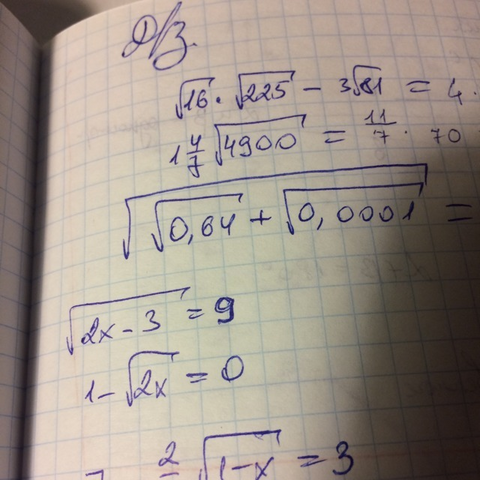 Д/З.
√16 · √225 − 3√81 = 4 ·
1 4/7 √4900 = 11/7 · 70
√(√0,64 + √0,0001) =
√(2x − 3) = 9
1 − √(2x) = 0
2 √(1 − x) = 3